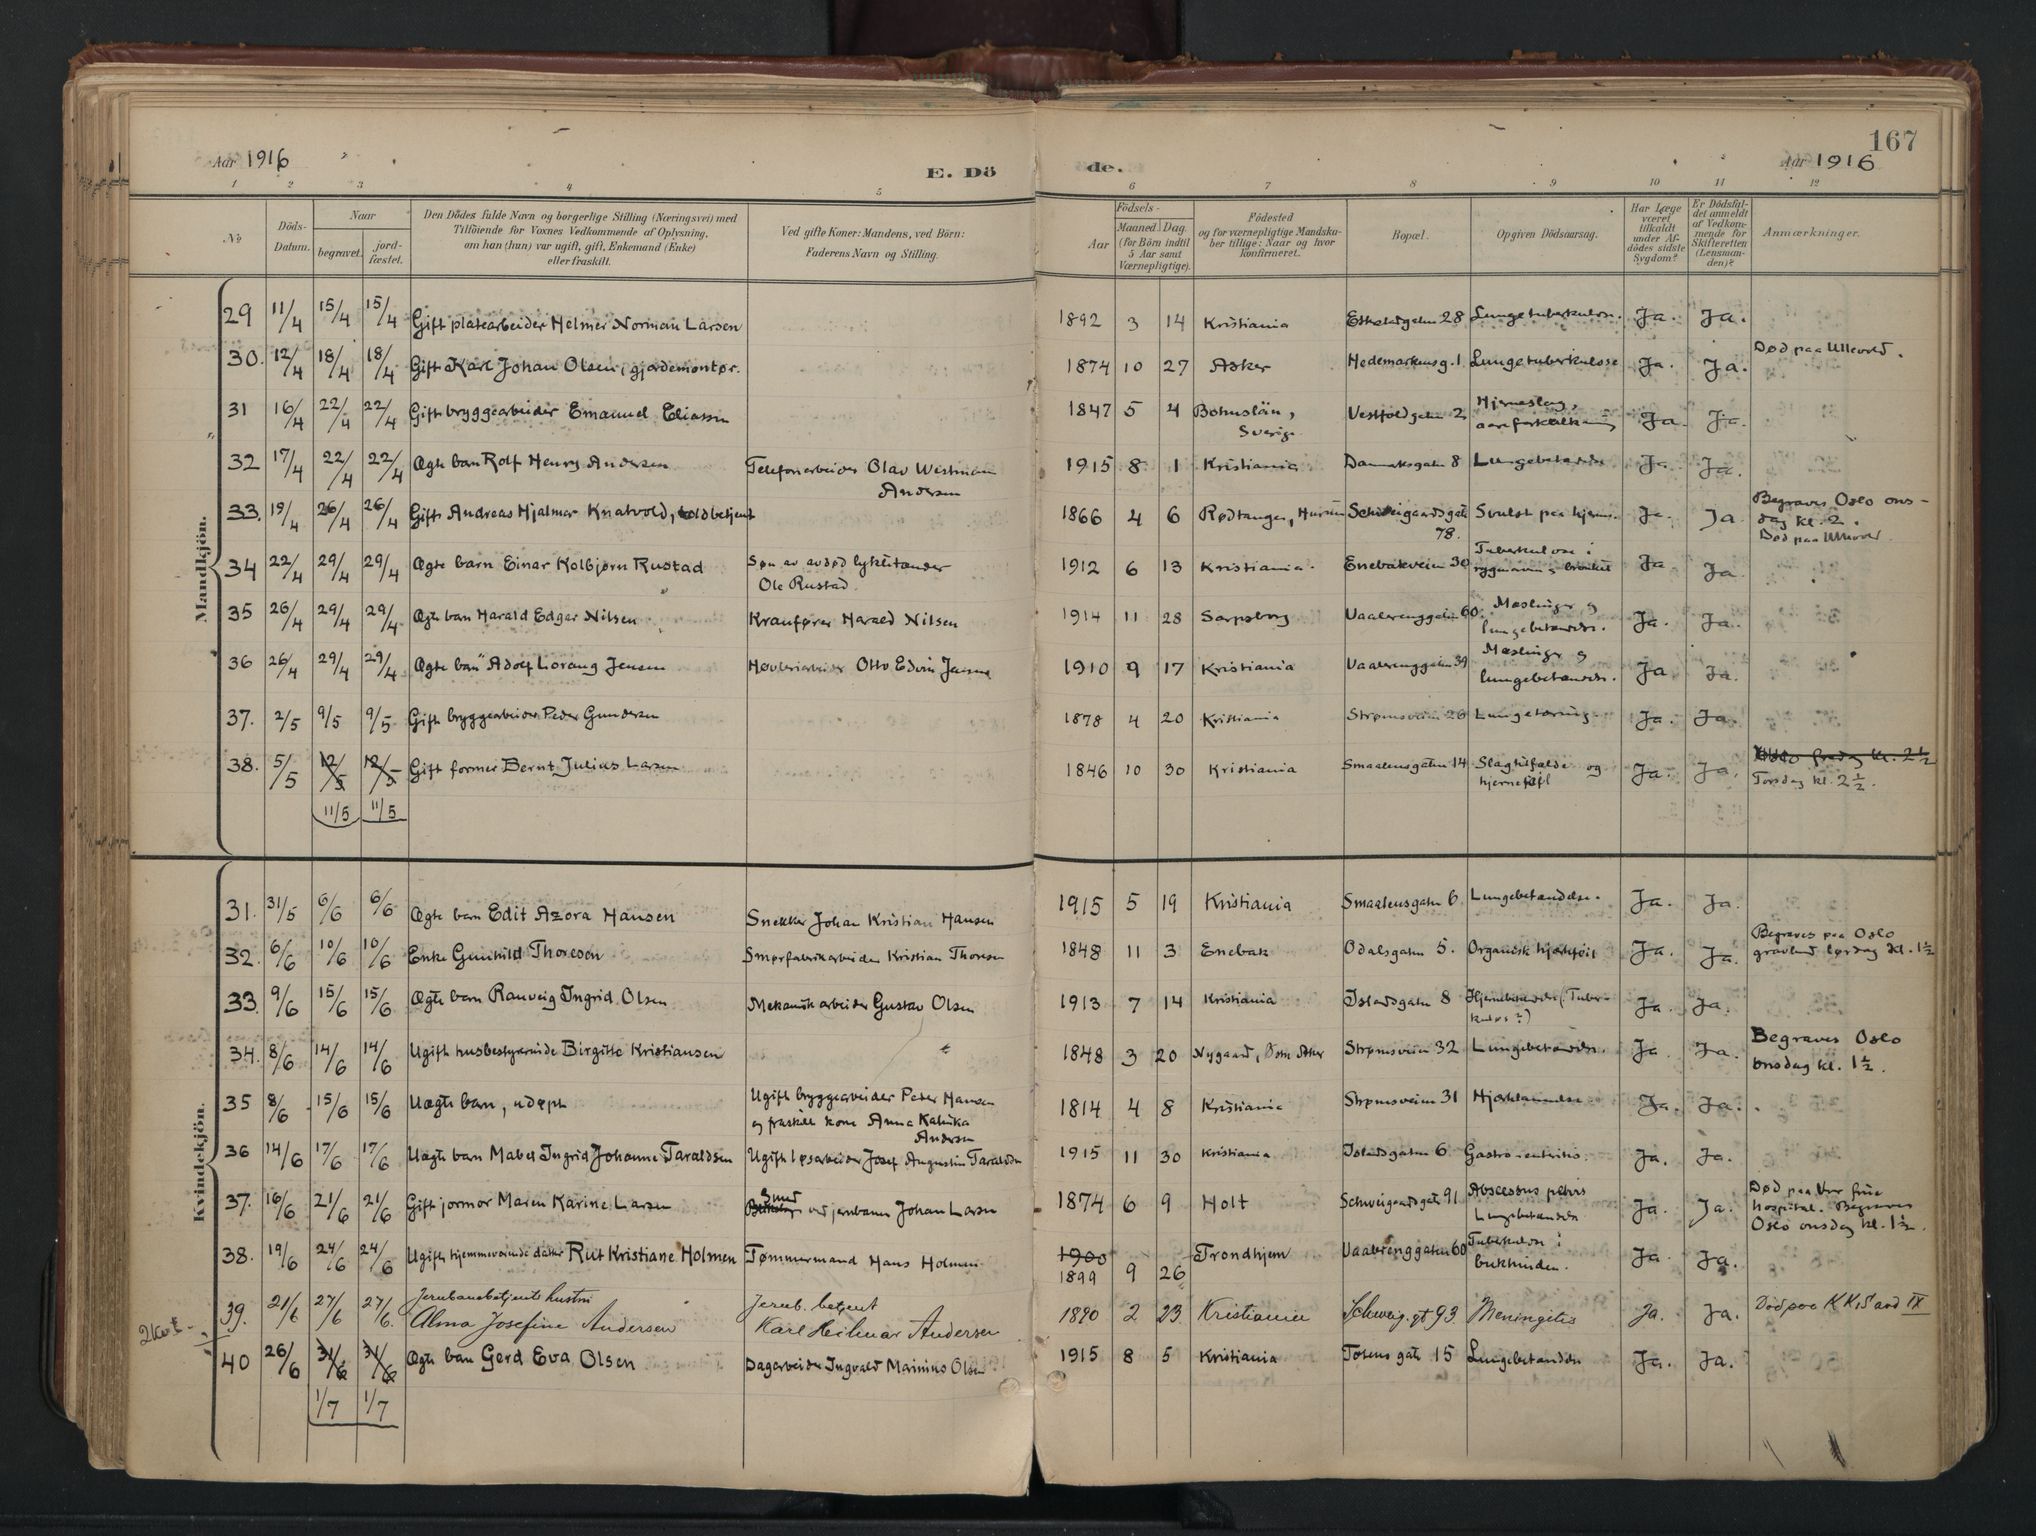 167
Aar 1916
E. Dö
de.
Aar 1916
1 2 3 4 5 6 7 8 9 10 11 12
№
Döds-
Datum.
Naar
begravet.
jord-
fæstet.
Den Dödes fulde Navn og borgerlige Stilling (Næringsvei) med
Tilföiende for Voxnes Vedkommende af Oplysning,
om han (hun) var ugift, gift, Enkemand (Enke)
eller fraskilt.
Ved gifte Koner: Mandens, ved Börn:
Faderens Navn og Stilling.
Födsels-
Aar
Maaned
Dag.
(for Börn indtil
5 Aar samt
Værnepligtige).
Födested
og for værnepligtige Mandska-
ber tillige: Naar og hvor
konfirmeret.
Bopæl.
Opgiven Dödsaarsag.
Har Læge
været
tilkaldt
under Af-
dödes sidste
Sygdom?
Er Dödsfal-
det anmeldt
af Vedkom-
mende for
Skifteretten
(Lensman-
den)?
Anmærkninger.
Mandkjön.
29 11/4 15/4 15/4 Gift platearbeider Helmer Norman Larsen 1892 3 14 Kristiania 28 Lungetuberkulose. Ja. Ja.
30. 12/4 18/4 18/4 Gift Karl Johan Olsen, gjørdemontør. 1874 10 27 Asker Hedemarkensg. 1 Lungetuberkulose Ja. Ja. Død paa Ullevold.
31 16/4 22/4 22/4 Gift bryggearbeider Emanuel Eliassen 1847 5 4 Bohuslän, Vestfoldgaten 2 Hjerneslag, Ja. Ja.
Sverige aareforkalkning
32 17/4 22/4 22/4 Ægte barn Rolf Henry Andersen Telefonarbeider Olav Westman 1915 8 1 Kristiania Danmarksgaten 8 Lungebetændelse Ja Ja.
Andersen
33. 19/4 26/4 26/4 Gift Andreas Hjalmar Knatvold, toldbetjent 1866 4 6 Rødtangen, Hurum Schweigaardsgate Svulst paa hjernen. Ja. Ja. Begraves Oslo ons-
78. dag kl. 2.
Død paa Ullevold
34 22/4 29/4 29/4 Ægte barn Einar Kolbjørn Rustad Søn av avdød lyktetænder 1912 6 13 Kristiania. Enebakveien 30 Tuberkulose i Ja Ja
Ole Rustad.
35 26/4 29/4 29/4 Ægte barn Harald Edgar Nilsen Kranfører Harald Nilsen 1914 11 28 Sarpsborg Vaalerenggaten 60. Mæslinger og Ja. Ja.
lungebetændelse.
36 26/4 29/4 29/4 Ægte barn Adolf Lorang Jensen Høvleriarbeider Otto Edvin Jensen 1910 9 17 Kristiania Vaalerenggaten 39 Mæslinger og Ja Ja.
lungebetændelse.
37. 2/5 9/5 9/5 Gift bryggearbeider Peder Gundersen 1878 4 20 Kristiania Strømsveien 26 Lungetæring. Ja. Ja.
38. 5/5 12/5 12/5 Gift former Bernt Julius Larsen 1846 10 30 Kristiania Smaalensgaten 14 Slagtilfælde og Ja. Ja. fredag kl. 2½
hjernefeil Torsdag kl. 2½.
11/5 11/5
Kvindekjön.
31. 31/5 6/6 6/6 Ægte barn Edit Azora Hansen Snekker Johan Kristian Hansen 1915 5 19 Kristiania Smaalensgaten 6 Lungebetændelse. Ja. Ja.
32. 6/6 10/6 10/6 Enke Gunhild Thoresen Smørfabrikarbeider Kristian Thoresen 1848 11 3 Enebak Odalsgaten 5. Organisk hjertefeil Ja. Ja. Begraves paa Oslo
gravlund lørdag kl. 1½
33. 9/6 15/6 15/6 Ægte barn Ranveig Ingrid Olsen Mekanikarbeider Gustav Olsen 1913 7 14 Kristiania Islandsgaten 8 Hjernebetændelse (Tuber- Ja. Ja.
kuløs?)
34. 8/6 14/6 14/6 Ugift husbestyrerinde Birgitte Kristiansen 1848 3 20 Nygaard, Østre Aker Strømsveien 32 Lungebetændelse. Ja. Ja. Begraves Oslo
onsdag kl. 1½.
35 8/6 15/6 15/6 Uægte barn, udøpt Ugift bryggearbeider Peter Hansen 1814 4 8 Kristiania Strømsveien 31 Hjertelammelse. Ja. Ja.
og fraskilt kone Anna Katinka
Andersen
36 14/6 17/6 17/6 Uægte barn Mabel Ingrid Johanne Taraldsen Ugift løsarbeider Josef Augustin Taraldsen 1915 11 30 Kristiania Islandsgaten 6 Gastro-entritis. Ja. Ja.
37. 16/6 21/6 21/6 Gift jormor Maren Karine Larsen Smed ved jernbanen Johan Larsen 1874 6 9 Holt Schweigaardsgate 91 Abscessus pelvis Ja. Ja. Død paa Vor frue
Lungebetændelse hospital. Begraves
Oslo onsdag kl. 1½.
38. 19/6 24/6 24/6 Ugift hjemmeværende datter Rut Kristiane Holmen Tømmermand Hans Holmen 1900 Trondhjem Vaalerenggaten 60 Tuberkulose i Ja Ja.
1899 9 26 bukhinden.
39. 21/6 27/6 27/6. Jernbanebetjents hustru Jernb. betjent 1890 2 23 Kristiania Schweig. gt 93 Meningitis Ja. Ja. Død paa K K S avd IX
Alma Josefine Andersen Karl Hilmar Andersen
40 26/6 31/6 31/6 Ægte barn Gerd Eva Olsen Dagarbeider Ingvald Mainius Olsen 1915 8 5 Kristiania Tøiens gate 15 Lungebetændelse Ja. Ja.
1/7 1/7